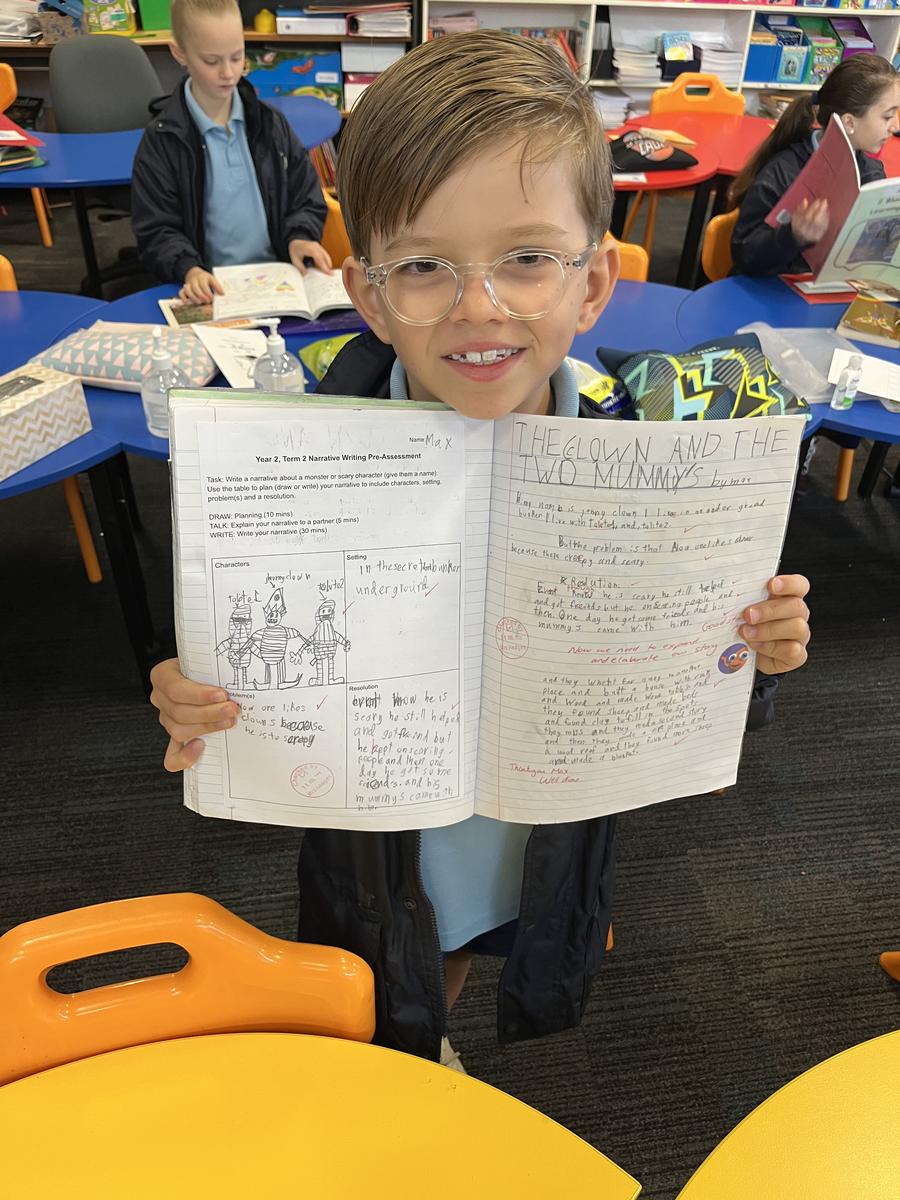 Name Max
Year 2, Term 2 Narrative Writing Pre-Assessment
Task: Write a narrative about a monster or scary character (give them a name).
Use the table to plan (draw or write) your narrative to include characters, setting,
problem(s) and a resolution.
DRAW: Planning (10 mins)
TALK: Explain your narrative to a partner (5 mins)
WRITE: Write your narrative (30 mins)
Characters
jenny clown
tolote1
tolite2
Setting
in the secret bunker
underground
Problem(s)
Now one likes
clowns because
he is to scrapy
Resolution
event how he is
scary he still helped
and got and but
he kept on scaring
people and then one
day he got some
friends. and his
mummys came with
him
THE CLOWN AND THE
TWO MUMMY'S by max
My name is jenny clown I live in an under grand
bunker I live with tolote1, and, tolite2.
But the problem is that Now one likes
because there creepy and scary.
Resolution
Event how he is scary he still helped
and got friends but he on scaring people and
then. One day he got some friends and his
mummy's came with him. Good
Now we need to expand
and elaborate on story
and they whent for
place and built a house with
and Wood and made Wood tables and
they found sheep and made beds
and found clay to fill in the spots
they miss and they made a second story
and then they made a and
a wood and they found more sheep
and made a blanket.
Thankyou Max
Well done